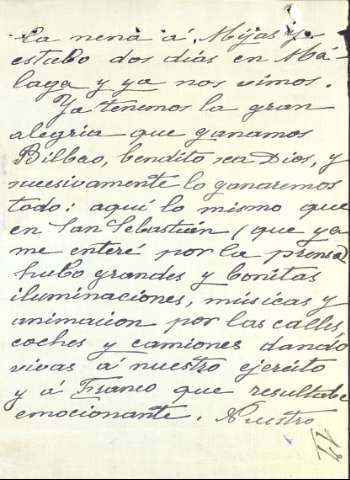 La nena á Mijas y se
estubo dos días en Má-
laga y ya nos vimos.
Ya tenemos la gran
alegria que ganamos
Bilbao, bendito sea Dios, y
sucesivamente lo ganaremos
todo: aquí lo mismo que
en San Sebastián (que ya
me enteré por la prensa)
hubo grandes y bonitas
iluminaciones, músicas y
animacion por las calles,
coches y camiones dando
vivas á nuestro ejército
y á Franco que resultaba
emocionante. Nuestro